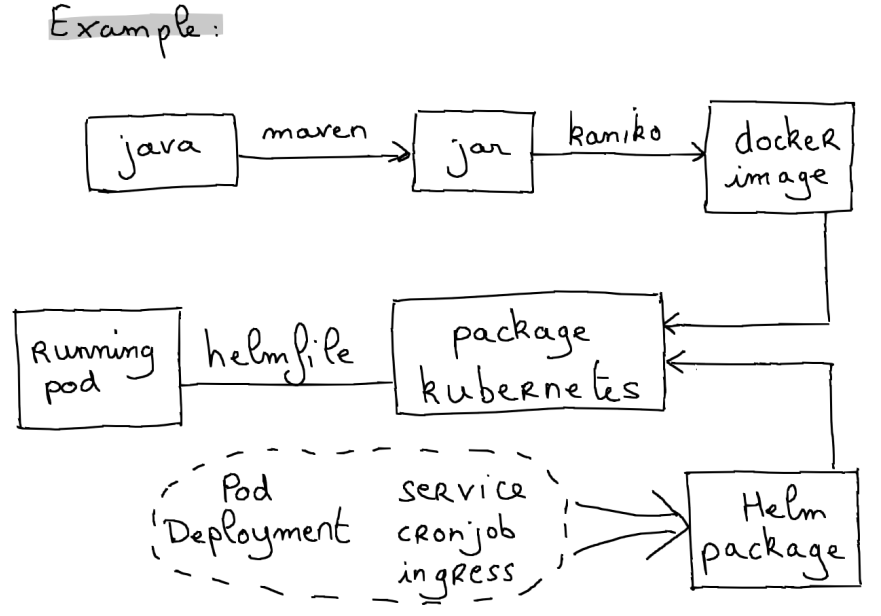 Example:
java
maven
jar
kaniko
docker
image
Running
pod
helmfile
package
kubernetes
Pod
Deployment
service
cronjob
ingress
Helm
package